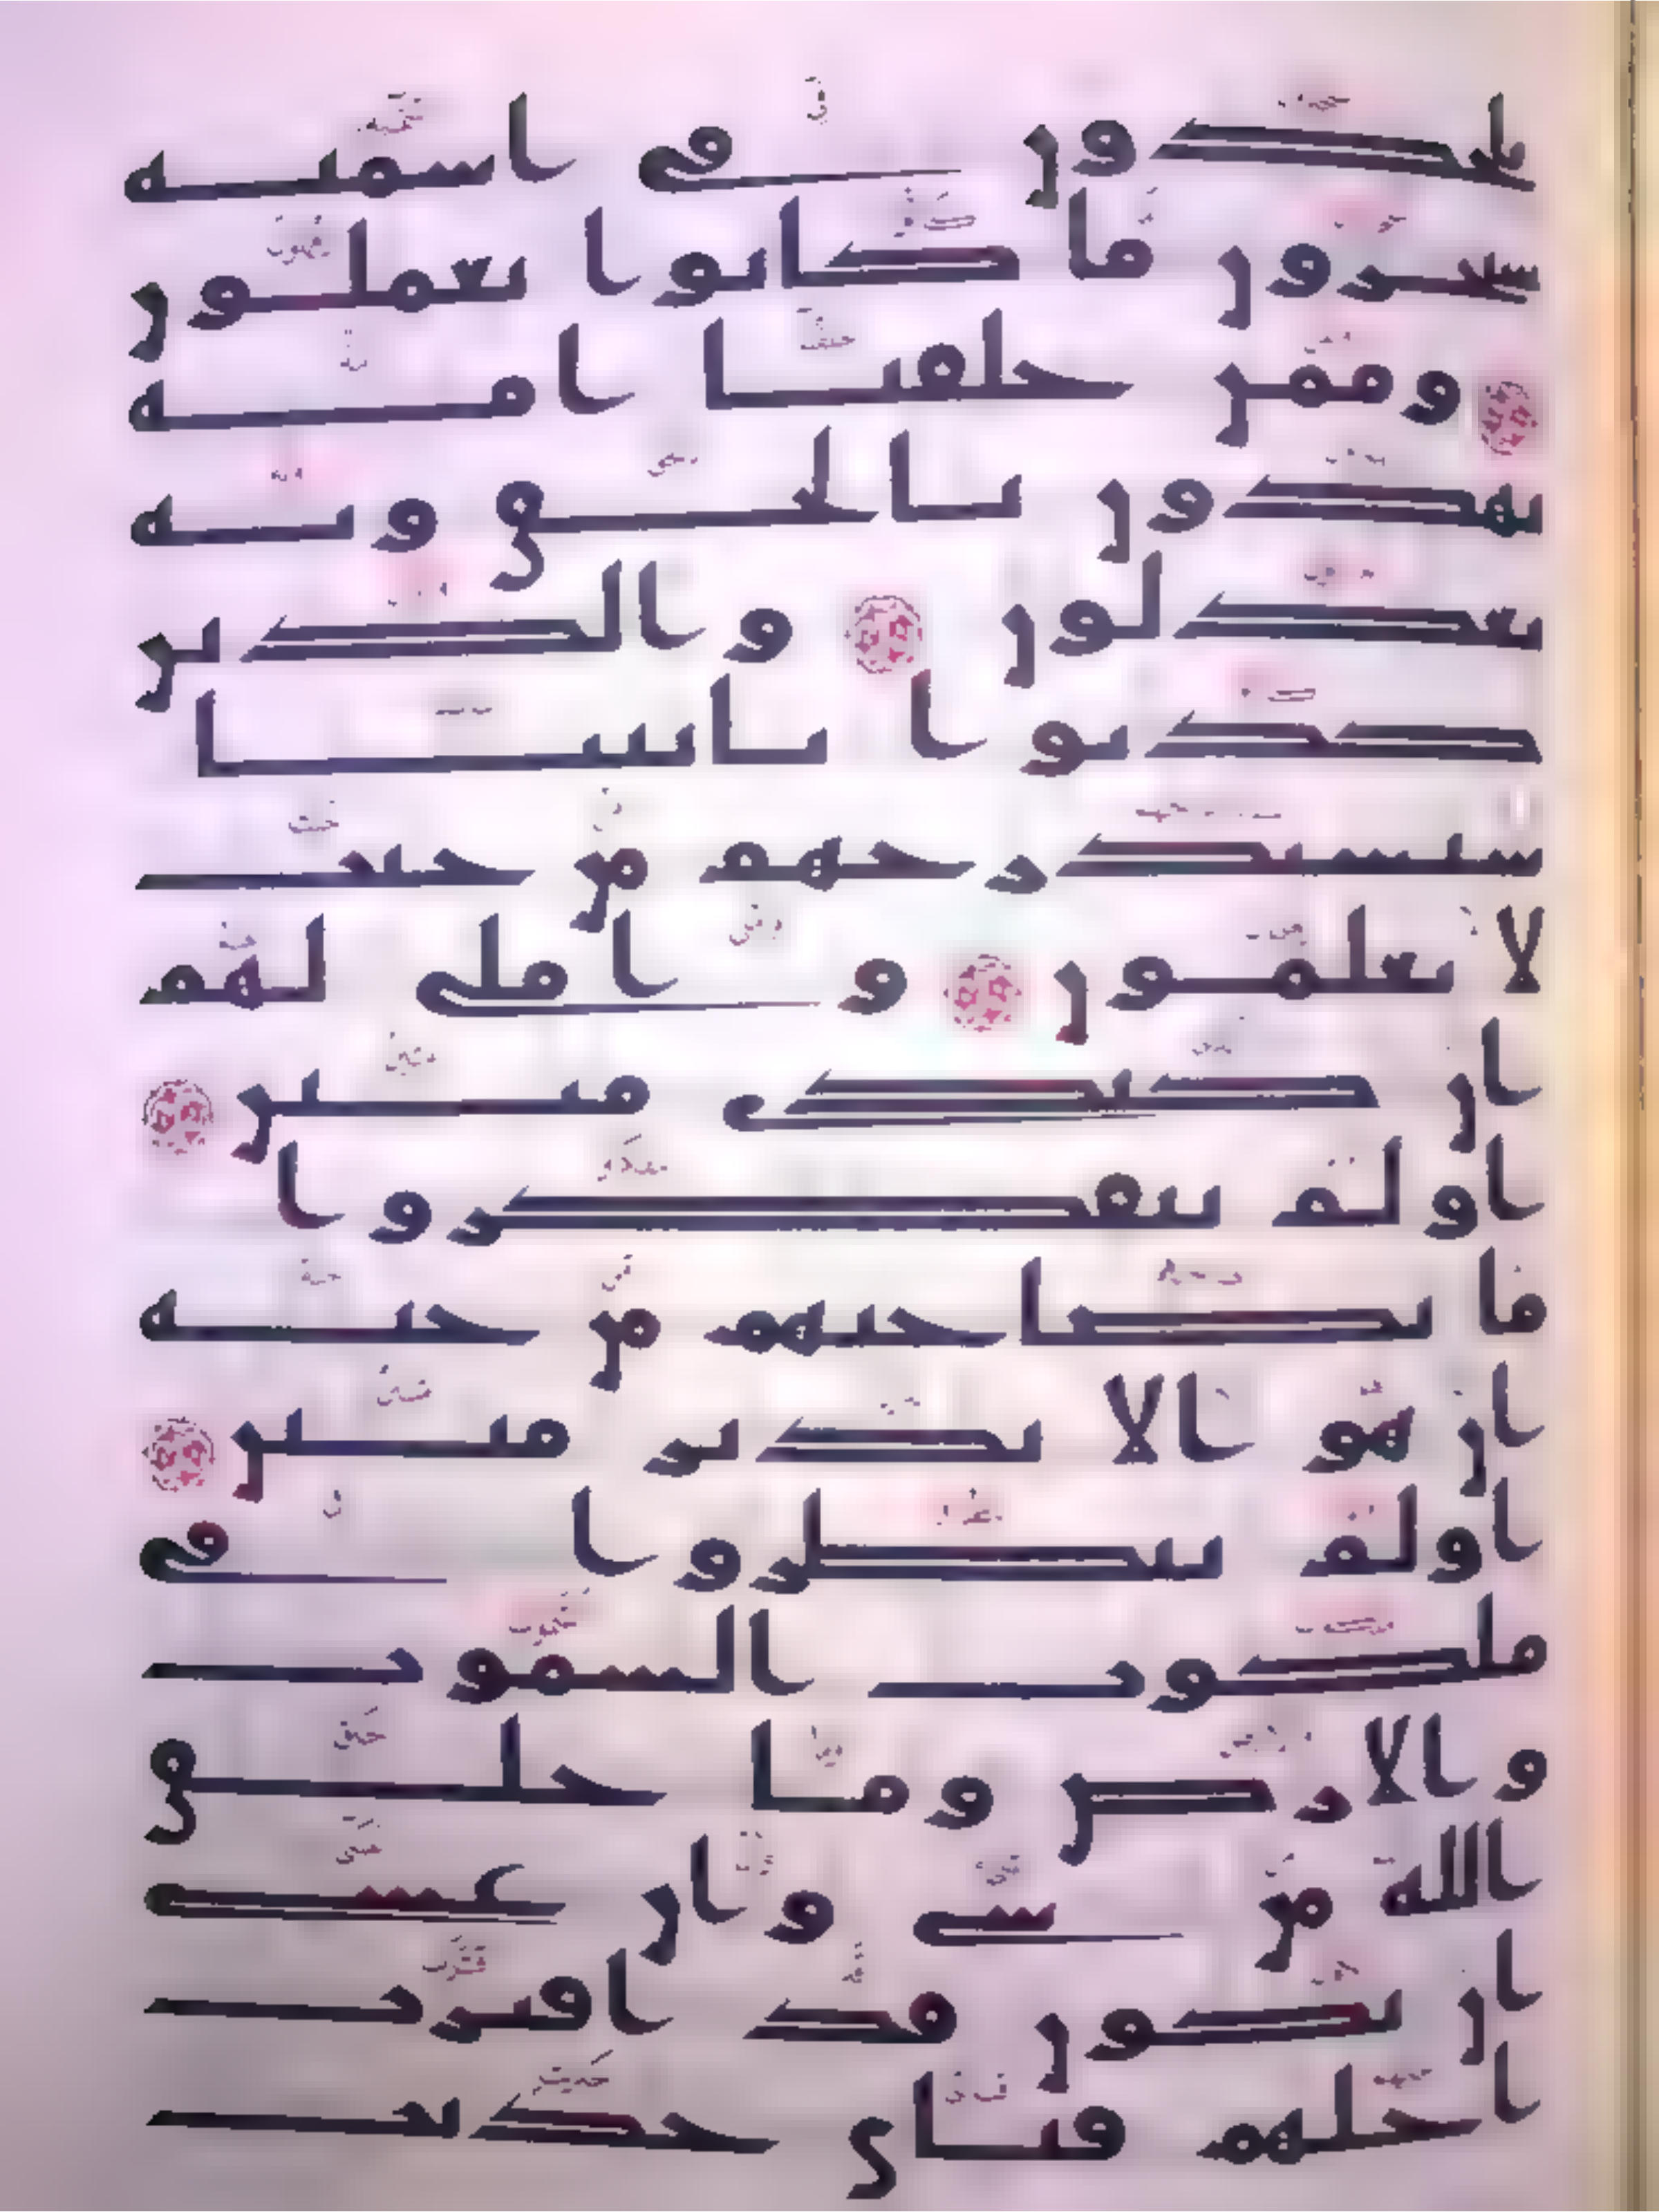 يلحدون في اسمئه
سيجزون ما كانوا يعملون
وممن خلقنا امة
يهدون بالحق وبه
يعدلون والذين
كذبوا بايتنا
سنستدرجهم من حيث
لا يعلمون واملي لهم
ان كيدي متين
اولم يتفكروا
ما بصاحبهم من جنة
ان هو الا نذير مبين
اولم ينظروا في
ملكوت السموت
والارض وما خلق
الله من شي وان عسى
ان يكون قد اقترب
اجلهم فباي حديث